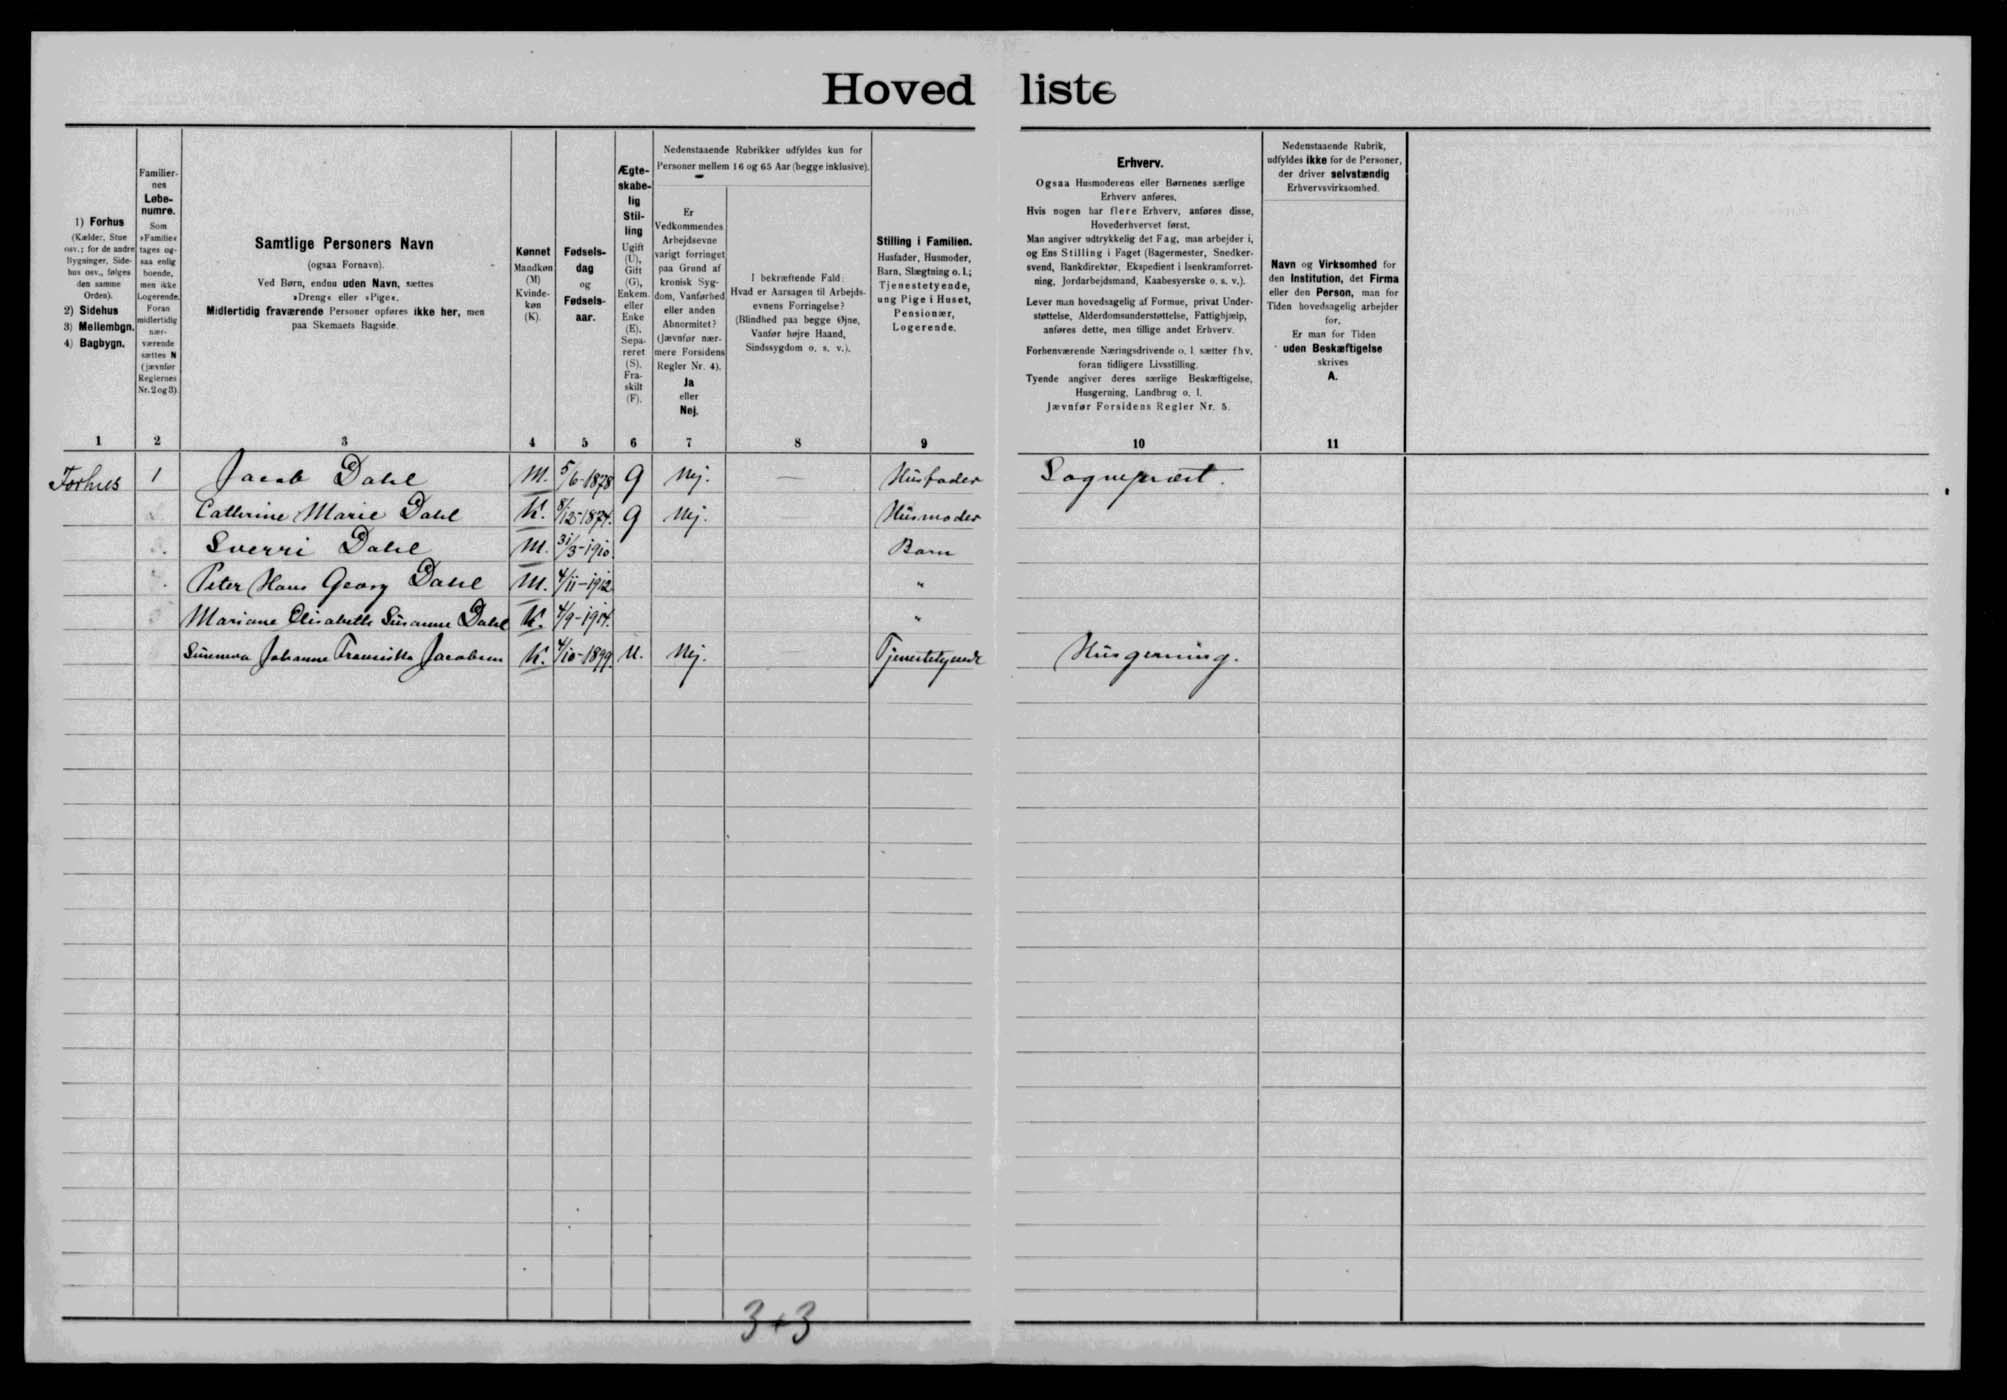 Hovedliste
1) Forhus
(Kælder, Stue
osv.; for de andre
Bygninger, Side-
hus osv., følges
den samme
Orden).
2) Sidehus
3) Mellembgn.
4) Bagbygn.
Familier-
nes
Løbe-
numre.
Som
»Familie«
tages og-
saa enlig
boende,
men ikke
Logerende.
Foran
midlertidig
nær-
værende
sættes N
(jævnfør
Reglernes
Nr. 2 og 3).
Samtlige Personers Navn
(ogsaa Fornavn).
Ved Børn, endnu uden Navn, sættes
»Dreng« eller »Pige«.
Midlertidig fraværende Personer opføres ikke her, men
paa Skemaets Bagside.
Kønnet
Mandkøn
(M)
Kvinde-
køn
(K).
Fødsels-
dag
og
Fødsels-
aar.
Ægte-
skabe-
lig
Stil-
ling
Ugift
(U),
Gift
(G),
Enkem.
eller
Enke
(E),
Sepa-
reret
(S),
Fra-
skilt
(F).
Nedenstaaende Rubrikker udfyldes kun for
Personer mellem 16 og 65 Aar (begge inklusive).
Er
Vedkommendes
Arbejdsevne
varigt forringet
paa Grund af
kronisk Syg-
dom, Vanførhed
eller anden
Abnormitet?
(Jævnfør nær-
mere Forsidens
Regler Nr. 4).
Ja
eller
Nej.
I bekræftende Fald:
Hvad er Aarsagen til Arbejds-
evnens Forringelse?
(Blindhed paa begge Øjne,
Vanfør højre Haand,
Sindssygdom o. s. v.).
Stilling i Familien.
Husfader, Husmoder,
Barn, Slægtning o. l.;
Tjenestetyende,
ung Pige i Huset,
Pensionær,
Logerende.
Erhverv.
Ogsaa Husmoderens eller Børnenes særlige
Erhverv anføres.
Hvis nogen har flere Erhverv, anføres disse,
Hovederhvervet først.
Man angiver udtrykkelig det Fag, man arbejder i,
og Ens Stilling i Faget (Bagermester, Snedker-
svend, Bankdirektør, Ekspedient i Isenkramforret-
ning, Jordarbejdsmand, Kaabesyerske o. s. v.).
Lever man hovedsagelig af Formue, privat Under-
støttelse, Alderdomsunderstøttelse, Fattighjælp,
anføres dette, men tillige andet Erhverv.
Forhenværende Næringsdrivende o. l. sætter fhv.
foran tidligere Livsstilling.
Tyende angiver deres særlige Beskæftigelse,
Husgerning, Landbrug o. l.
Jævnfør Forsidens Regler Nr. 5.
Nedenstaaende Rubrik,
udfyldes ikke for de Personer,
der driver selvstændig
Erhvervsvirksomhed.
Navn og Virksomhed for
den Institution, det Firma
eller den Person, man for
Tiden hovedsagelig arbejder
for.
Er man for Tiden
uden Beskæftigelse
skrives
A.
1 2 3 4 5 6 7 8 9 10 11
Forhus 1 Jacob Dahl M. 5/6-1878 G Nej. — Husfader Sognepræst.
Cathrine Marie Dahl K. 8/12-1874. G Nej. Husmoder
Sverri Dahl M. 31/3-1910. Barn
Peter Hans Georg Dahl M. 4/11-1912. "
Mariane Elisabeth Susanne Dahl K. 4/9-1914. "
Johanne Jacobsen K. 4/10-1899. U. Nej. Tjenestetyende Husgerning.
3+3